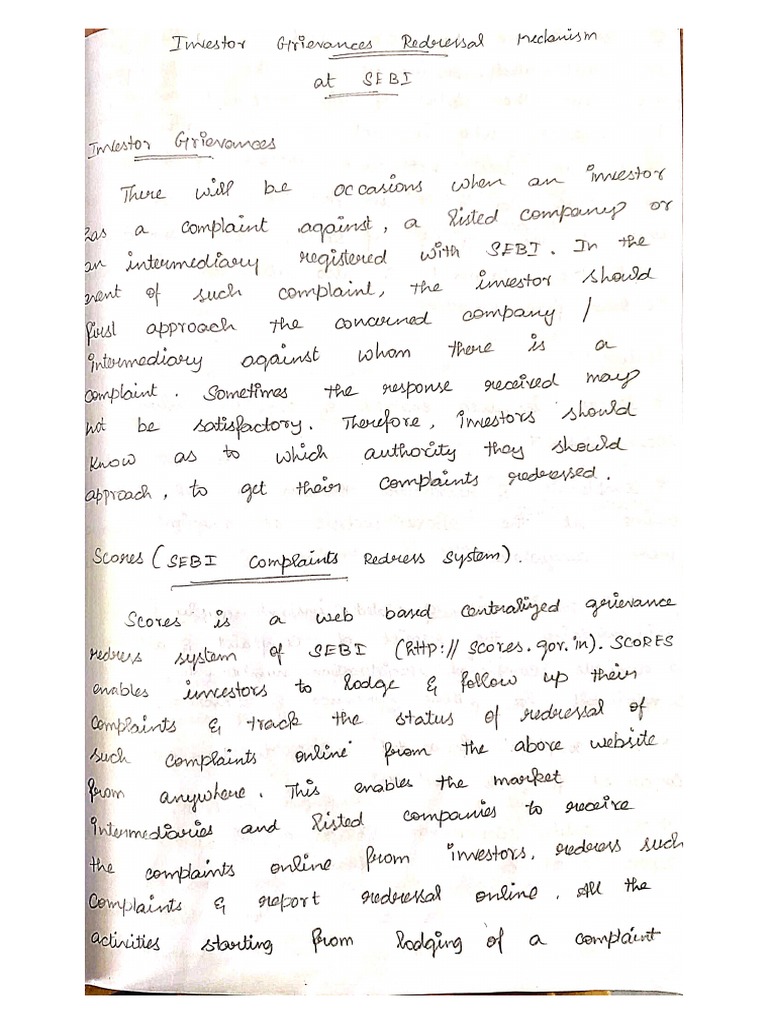 Investor Grievances Redressal Mechanism
at SEBI
Investor Grievances
There will be occasions when an investor
has a complaint against, a listed company or
an intermediary registered with SEBI. In the
event of such complaint, the investor should
first approach the concerned company /
intermediary against whom there is a
complaint. Sometimes the response received may
not be satisfactory. Therefore, investors should
know as to which authority they should
approach, to get their complaints redressed.
Scores (SEBI Complaints Redress System).
Scores is a web based centralized grievance
redress system of SEBI (http://scores.gov.in). SCORES
enables investors to lodge & follow up their
complaints & track the status of redressal of
such complaints online from the above website
from anywhere. This enables the market
intermediaries and listed companies to receive
the complaints online from investors, redress such
complaints & report redressal online. All the
activities starting from lodging of a complaint